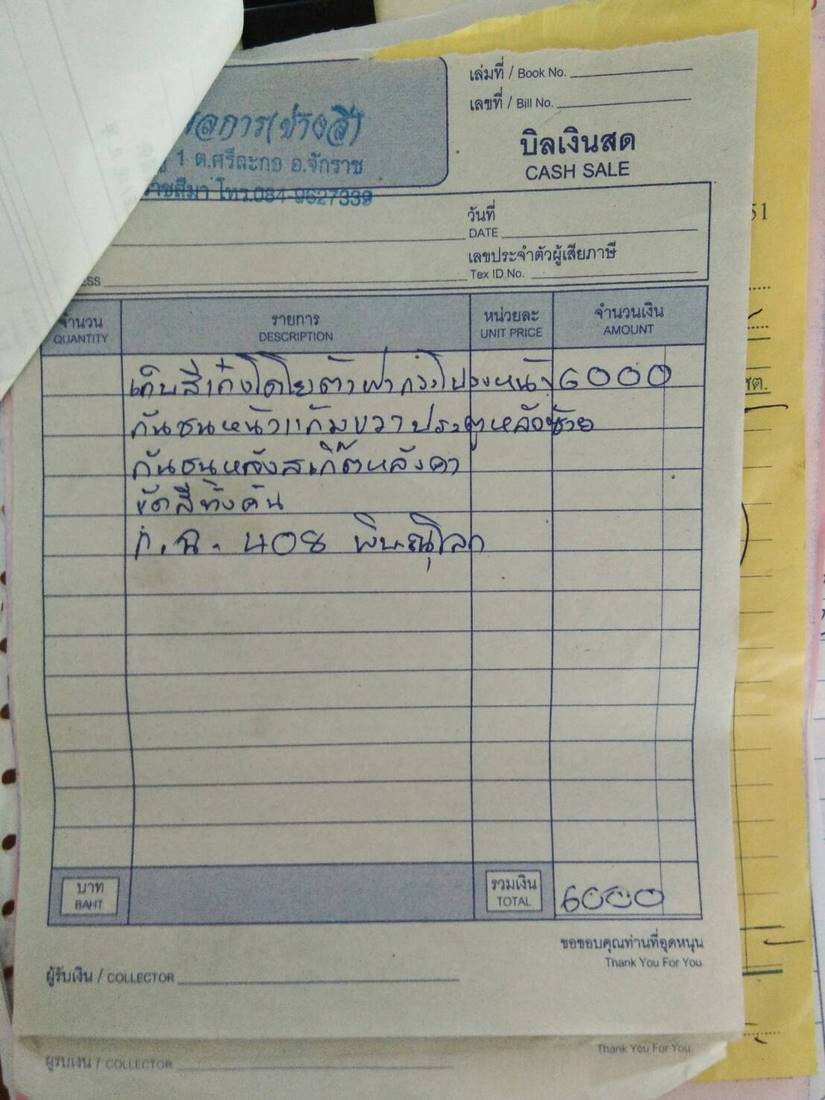 เล่มที่ / Book No.
เลขที่ / Bill No.
บิลเงินสด
CASH SALE
ลการ(ช่างสี)
1 ต.ศรีละกอ อ.จักราช
ราชสีมา โทร.084-9627339
วันที่
DATE
เลขประจำตัวผู้เสียภาษี
Tex ID No.
ESS
จำนวน
QUANTITY
รายการ
DESCRIPTION
หน่วยละ
UNIT PRICE
จำนวนเงิน
AMOUNT
เก็บสีเก๋งโตโยต้าฝากระโปรงหน้า 6000
กันชนหน้าแก้มขวาประตูหลังซ้าย
กันชนหลังสเกิ๊ตหลังคา
ขัดสีทั้งคัน
ก.ฉ. 408 พิษณุโลก
บาท
BAHT
รวมเงิน
TOTAL
6000
ขอขอบคุณท่านที่อุดหนุน
Thank You For You.
ผู้รับเงิน / COLLECTOR
Thank You For You.
ผู้รับเงิน / COLLECTOR
51
ชต.